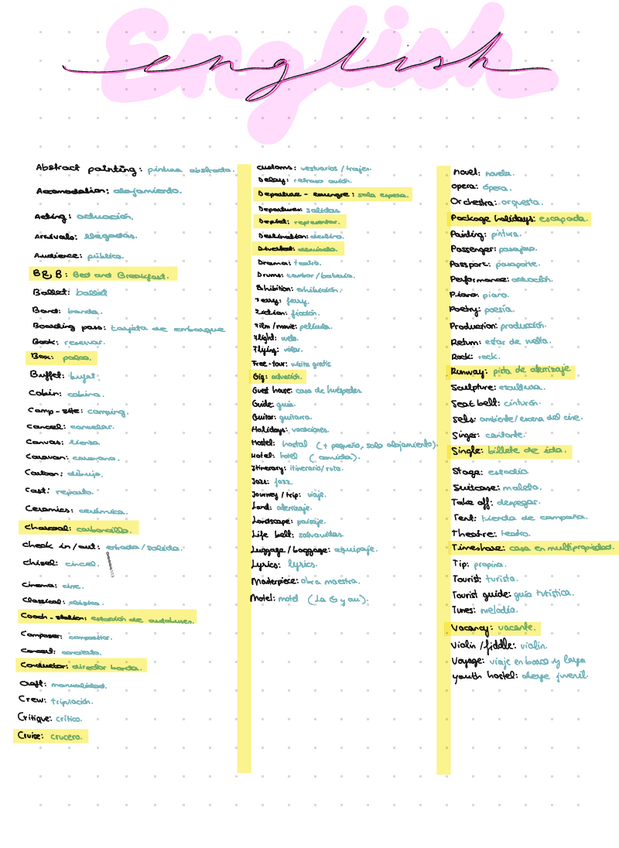 english
Abstract painting: pintura abstracta.
Accomodation: alojamiento.
Acting: actuación.
Arrivals: llegadas.
Audience: público.
B & B: Bed and Breakfast.
Ballet: ballet
Band: banda.
Boarding pass: tarjeta de embarque
Book: reservar.
Box: palco.
Buffet: bufet.
Cabin: cabina.
Camp-site: camping.
Cancel: cancelar.
Canvas: lienzo
Caravan: caravana.
Cartoon: dibujo.
Cast: reparto.
Ceramics: cerámica.
Charcoal: carboncillo.
check in/out: entrada/salida.
chisel: cincel.
cinema: cine.
Classical: clásica.
Coach-station: estación de autobuses.
Composer: compositor.
Concert: concierto.
Conductor: director banda.
Craft: manualidad.
Crew: tripulación.
Critique: crítica.
Cruise: crucero.
customs: vestuarios/trajes.
Delay: retraso avión.
Departure-lounge: sala espera.
Departures: salidas
Depict: representar.
Destination: destino.
Drama: teatro.
Drums: tambor/batería.
Exhibition: exhibición.
Ferry: ferry.
Fiction: ficción.
Film/movie: película.
Flight: vuelo.
Flying: volar.
Free-tour: visita gratis
Gig: actuación.
Guest house: casa de huéspedes
Guide: guía.
Guitar: guitarra.
Holidays: vacaciones.
Hostel: hostal (+ pequeño, solo alojamiento).
Hotel: hotel (comida).
Itinerary: itinerario/ruta.
Jazz: jazz.
Journey/trip: viaje.
Land: aterrizaje.
Landscape: paisaje.
Life belt: salvavidas.
Luggage/baggage: equipaje.
Lyrics: lyrics.
Masterpiece: obra maestra.
Motel: motel
novel: novela.
opera: ópera.
Orchestra: orquesta.
Package holidays: escapada.
Painting: pintura.
Passenger: pasajero.
Passport: pasaporte.
Performance: actuación.
Piano: piano.
Poetry: poesía.
Production: producción.
Return: estar de vuelta.
Rock: rock.
Runway: pista de aterrizaje
Sculpture: escultura.
Seat belt: cinturón.
Sets: ambiente/escena del cine.
Singer: cantante.
Single: billete de ida.
Stage: estadio
Suitcase: maleta.
Take off: despegar.
Tent: tienda de campaña.
Theatre: teatro.
Timeshare: casa en multipropiedad.
Tip: propina.
Tourist: turista.
Tourist guide: guía turística.
Tunes: melodía.
Vacancy: vacante.
Violin/fiddle: violín.
Voyage: viaje en barco y largo
youth hostel: albergue juvenil